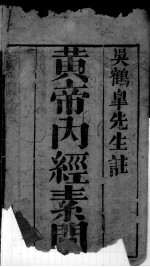 吳鶴皐先生註
黃帝內經素問